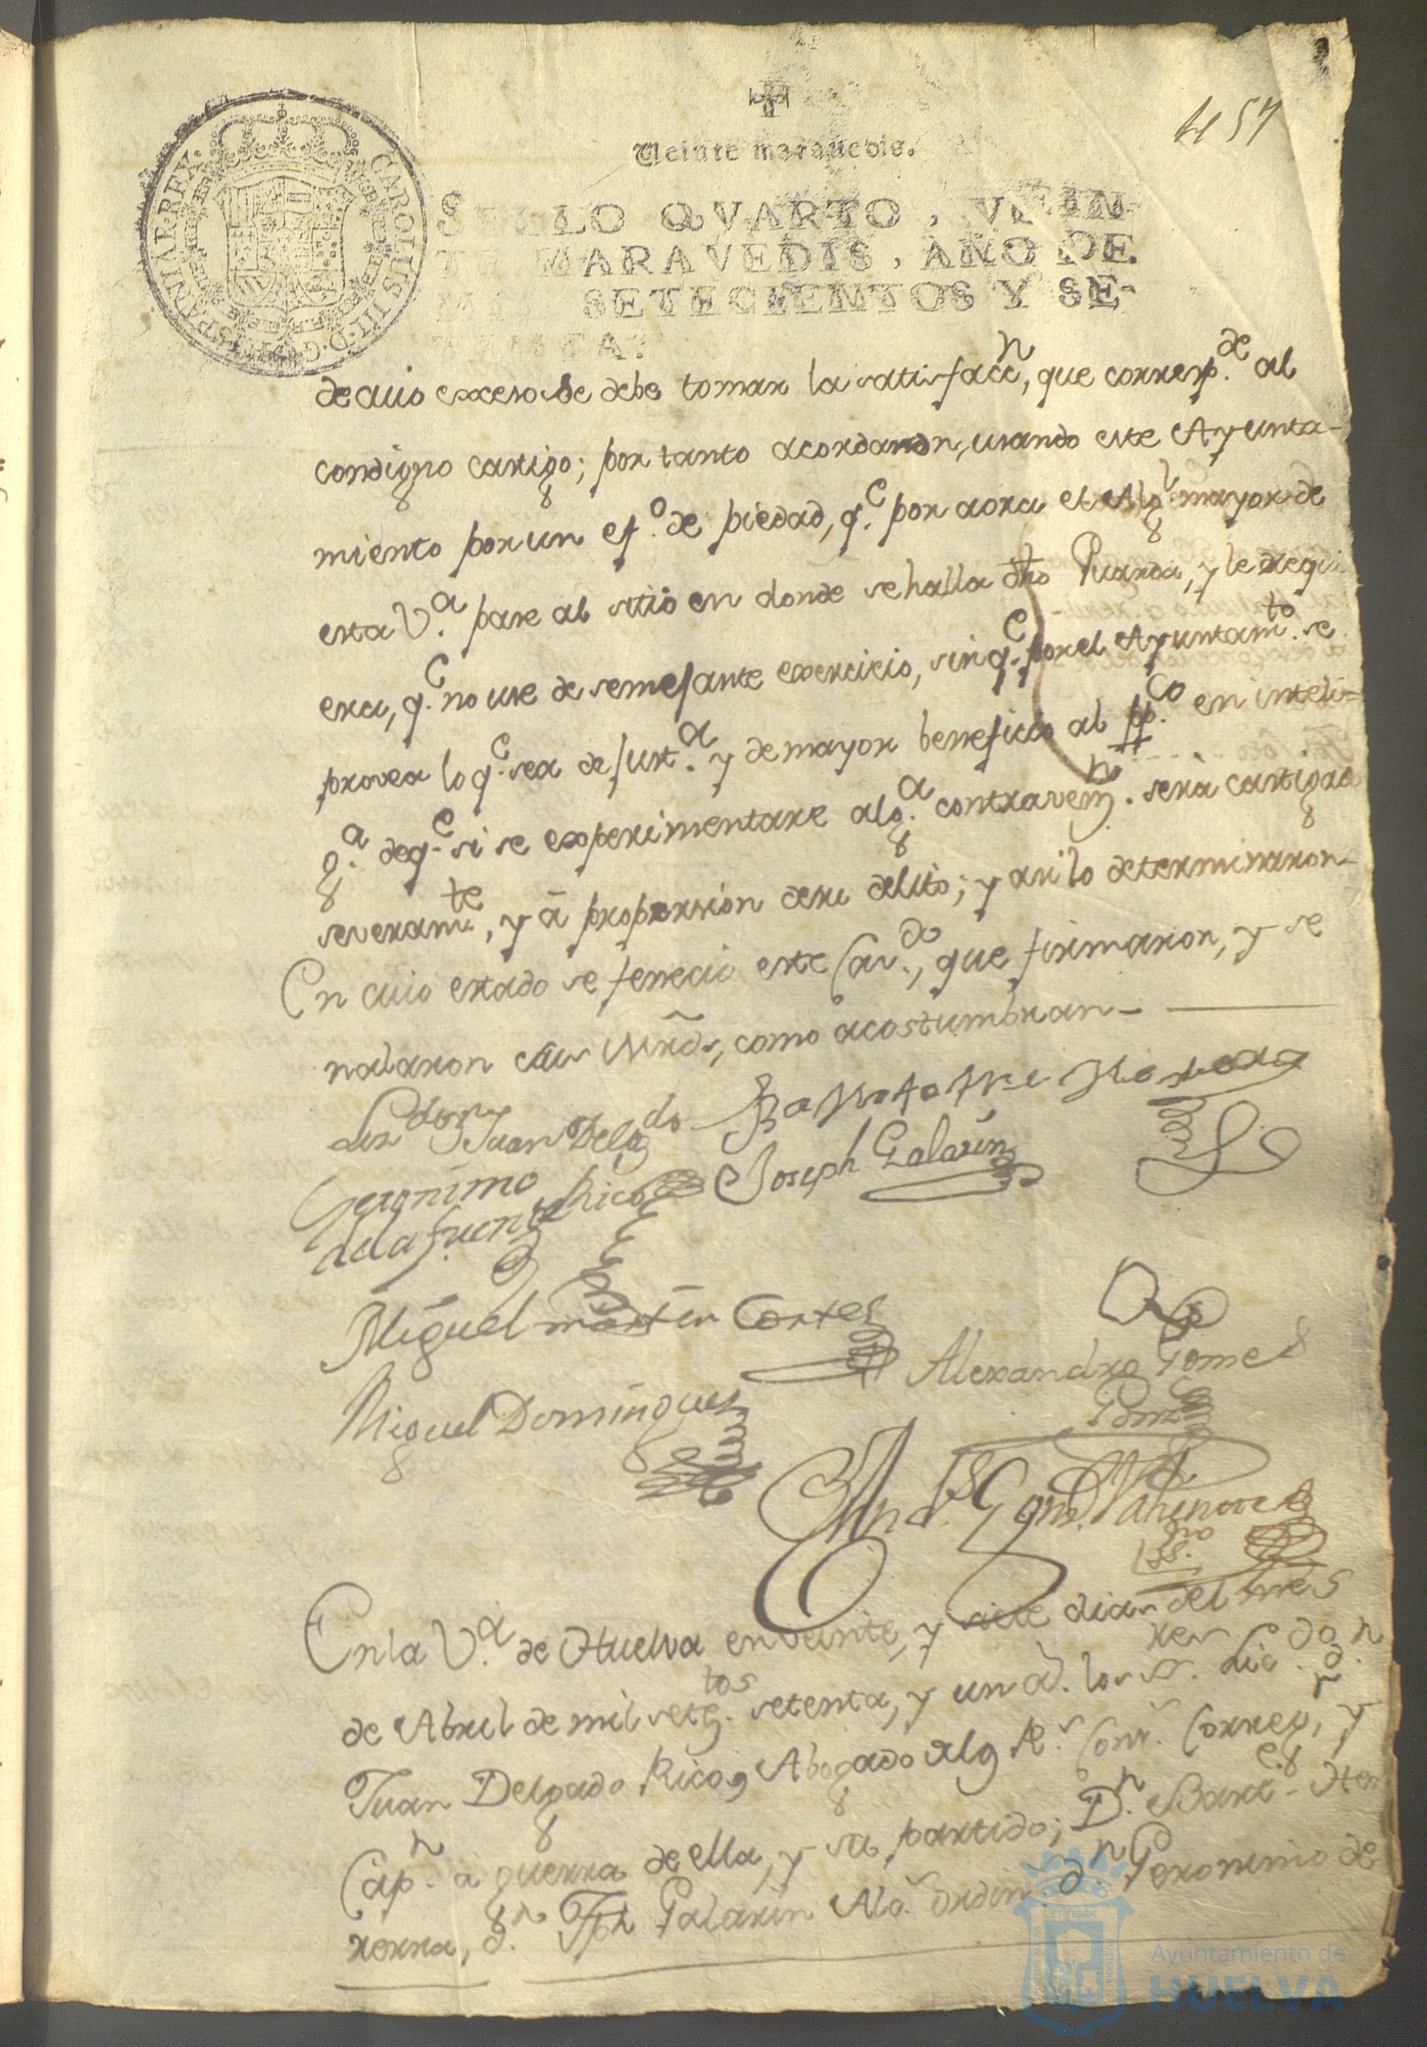 Veinte maravedis.
457
CAROLUS III. D. G. HISPANIAR. REX.
SELLO QVARTO, VEIN-
TE MARAVEDIS, AÑO DE
MIL SETECIENTOS Y SE-
TENTA:
de cuio exceso se debe tomar la satisfacc.n, que corresp.de al
condigno castigo; por tanto acordaron, usando este Ayunta-
miento por un ef.o de piedad, q.e por aora el Alg.l mayor de
esta V.a pase al sitio en donde se halla dho Guarda, y le requi-
era, q.e no use de semejante exercicio, sin q.e por el Ayuntam.to se
provea lo q.e sea de Just.a y de mayor beneficio al pp.co en inteli-
g.a de q.e si se experimentare alg.a contravenz.n será castigado
severam.te, y á propersion de su delito; y asi lo determinaron-
En cuio estado se fenecio este Cav.do, que firmaron, y se
ñalaron sus Mrds, como acostumbran-
Liz.do Dn Juan Delg.do Bartholome Herrera
Geronimo Rico Joseph Galarin
de la fuente
Miguel martin Cortes
Alexandro Gomes
Miguel Domingues
Ponze
And.s
ss.no
En la V.a de Huelva en veinte, y siete dias del mes
de Abril de mil setez.tos setenta, y un a.s los ss.res Lic.do D.n
Juan Delgado Rico, Abogado de los R.s Cons.s Correg.r, y
Cap.n á guerra de ella, y su partido; D.n Bart.e Her
rera, D.n Jph Galarin Alc.s ordin.s D.n Geronimo de
Ayuntamiento de
HUELVA